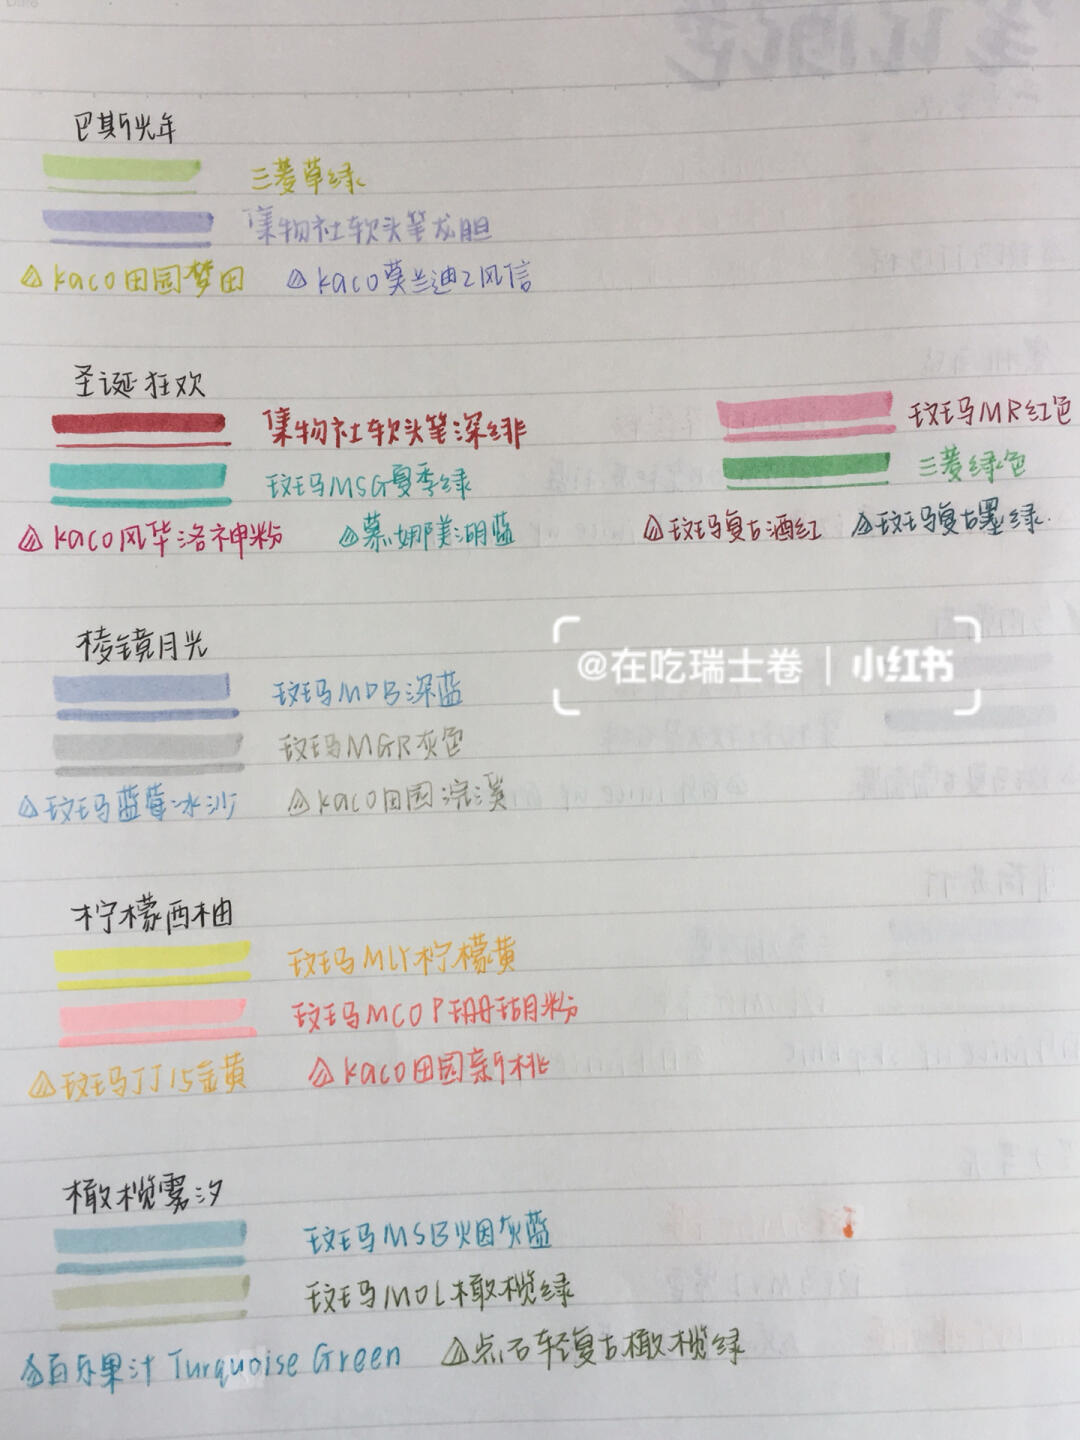 巴斯光年
三菱草绿
集物社软头笔龙胆
kaco田园梦田 kaco莫兰迪2风信
圣诞狂欢
集物社软头笔深绯 斑马MR红色
斑马MSG夏季绿 三菱绿色
kaco风华洛神粉 慕娜美湖蓝 斑马复古酒红 斑马复古墨绿.
棱镜月光
@在吃瑞士卷 | 小红书
斑马MDB深蓝
斑马MGR灰色
斑马蓝莓冰沙 kaco田园浣溪
柠檬西柚
斑马MLY柠檬黄
斑马MCOP珊瑚粉
斑马JJ15金黄 kaco田园新桃
橄榄雾汐
斑马MSB烟灰蓝
斑马MOL橄榄绿
百乐果汁 Turquoise Green 点石轻复古橄榄绿